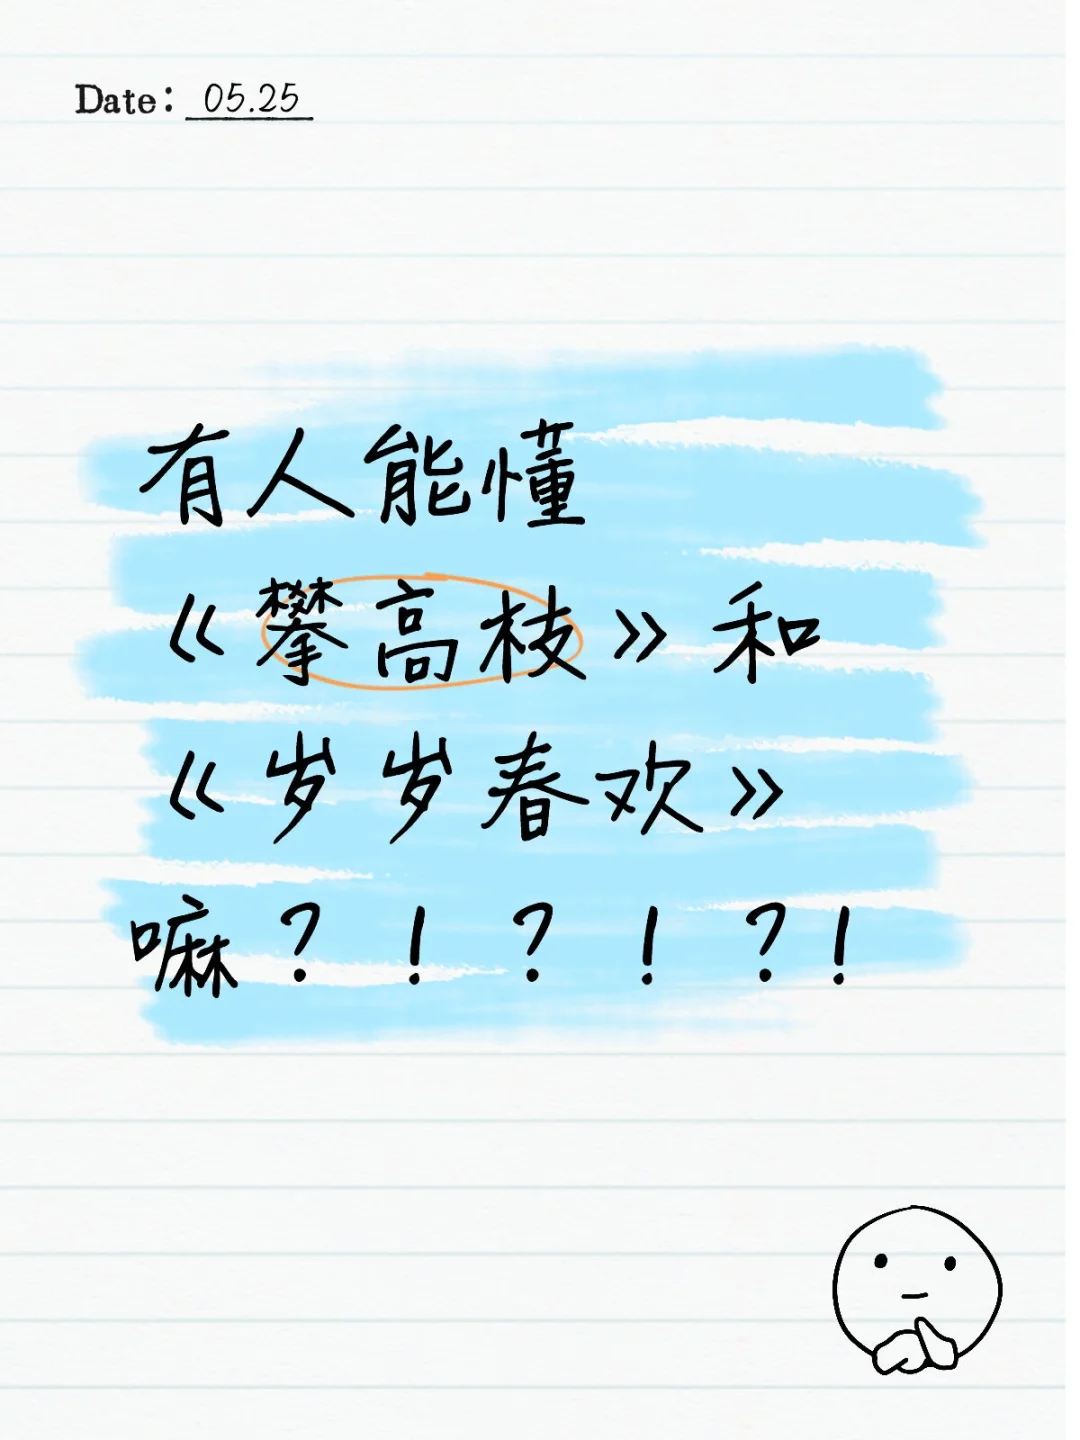 Date: 05.25
有人能懂
《攀高枝》和
《岁岁春欢》
嘛？！？！？！